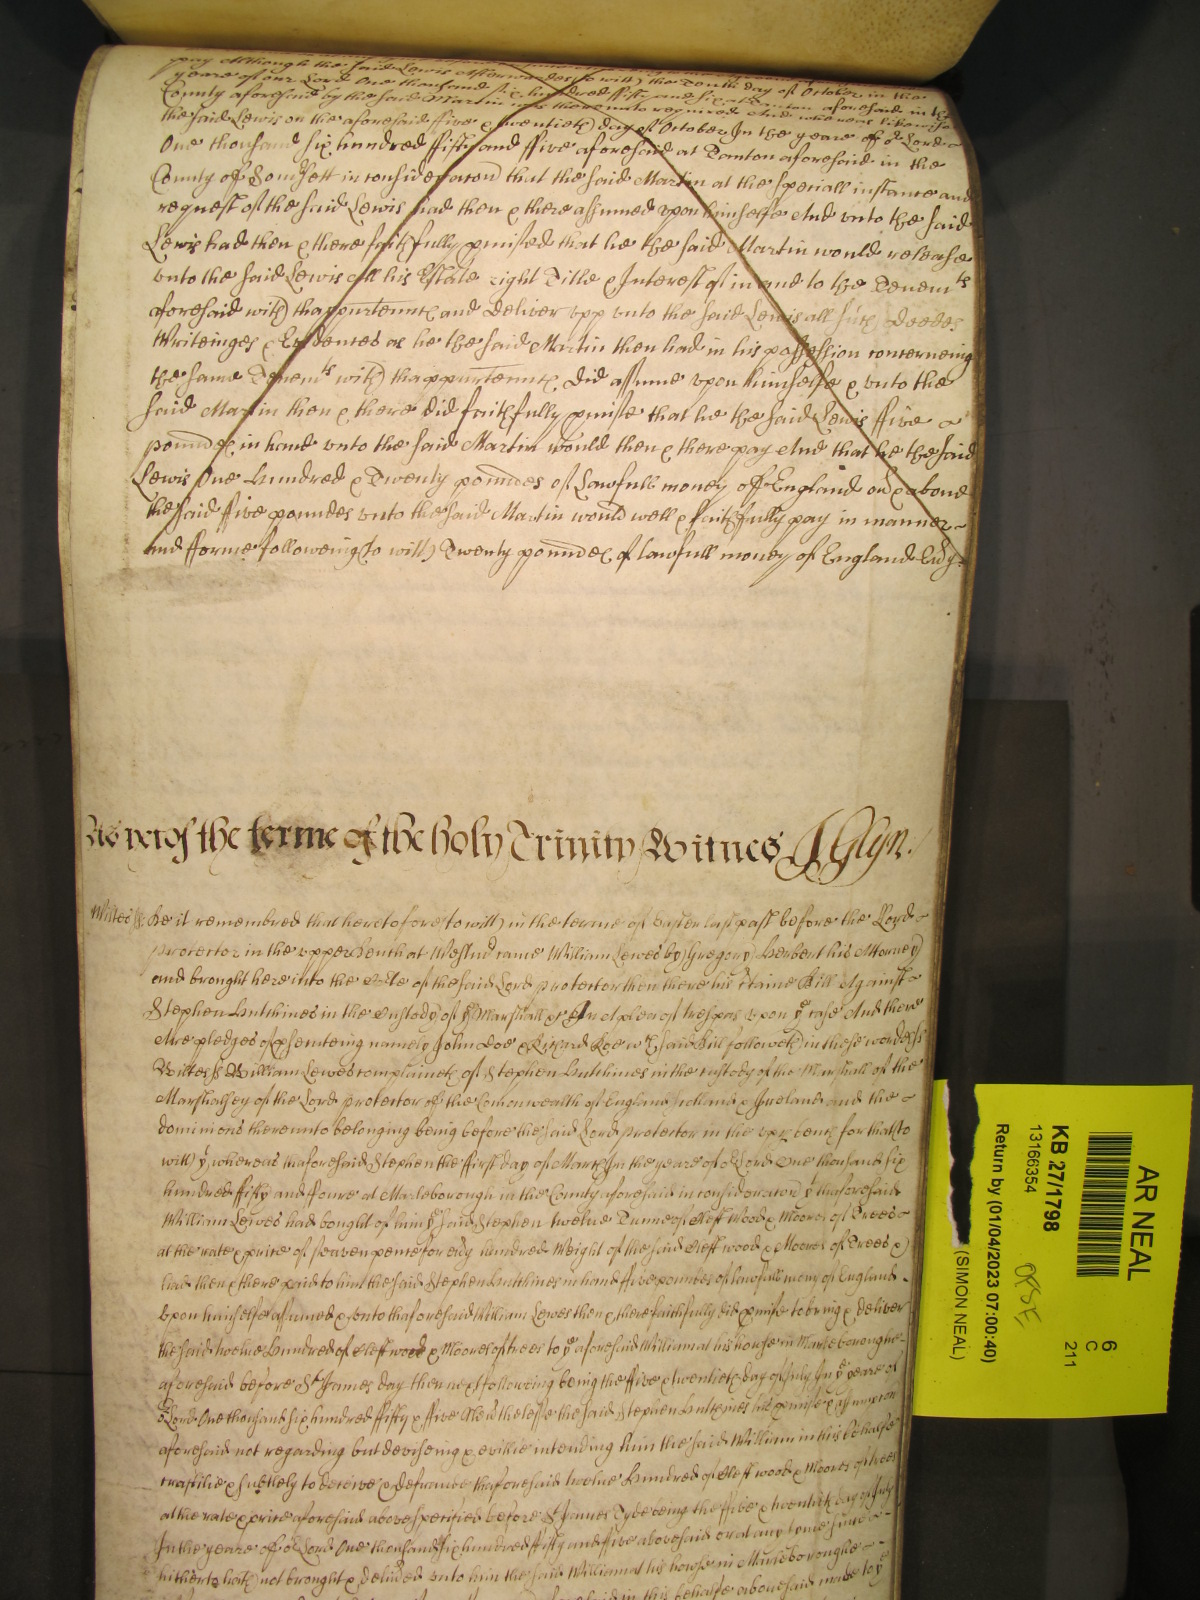 pay Although the said Lewis Afterwardes (to witt) the Tenth day of October in the
yeare of our Lord One thousand six hundred fifty and six at Tanton aforesaid in the
County aforesaid by the said Martin was thereunto required And whereas likewise
the said Lewis on the aforesaid five & twentieth day of October In the yeare of or Lord
One thousand six hundred ffifty and ffive aforesaid at Tanton aforesaid in the
County of Somersett in consideracon that the said Martin at the speciall instance and
request of the said Lewis had then & there assumed upon himselfe And unto the said
Lewis had then & there faithfully pmised that he the said Martin would release
unto the said Lewis all his Estate right Title & Interest of in and to the Tenemts
aforesaid with thappurtennc and deliver upp unto the said Lewis all such deedes
Writeinges & Evidences as he the said Martin then had in his possession concerneing
the same Tenemts with thappurtennc did assume upon himselfe & unto the
said Martin then & there did faithfully pmise that he the said Lewis ffive
poundes in hand unto the said Martin would then & there pay And that he the said
Lewis One hundred & Twenty poundes of Lawfull money of England over & above
the said ffive poundes unto the said Martin would well & faithfully pay in manner
and fforme followeing (to witt) Twenty poundes of lawfull money of England
As yet of the terme of the holy Trinity Witnes J Glyn.
Wiltes ss Be it remembred that heretofore (to witt) in the terme of Easter last past before the Lord
protector in the upper bench at Westmr came William Lewes by Gregory Herbert his Attorney
and brought here into the Court of the said Lord protector then there his certaine Bill Against
Stephen Hutchines in the Custody of ye Marshall &c In A plea of trespas upon ye case And there
Are pledges of psecuteing namely John Doe & Richard Roe wch said Bill followeth in these wordes ss
Wiltes ss William Lewes complaineth of Stephen Hutchines in the custody of the Marshall of the
Marshalsey of the Lord protector of the Comonwealth of England Scotland & Ireland and the
dominions thereunto belonging being before the said Lord protector in the upper bench for that (to
witt) yt whereas thaforesaid Stephen the first day of March In the yeare of or Lord One thousand six
hundred fifty and foure at Marleborough in the County aforesaid in consideracon yt thaforesaid
William Lewes had bought of him ye said Stephen twelve Tunne of Cleff wood & Moores of Trees
at the rate & price of seaven pence for every hundred weight of the said Cleff wood & Moores of Trees &
had then & there paid to him the said Stephen Hutchines in hand ffive poundes of lawfull mony of England
Upon himselfe assumed & unto thaforesaid William Lewes then & there faithfully did pmise to bring & deliver
the said twelve hundred of Cleff wood & Moores of trees to ye aforesaid William at his howse in Marleboroughe
aforesaid before St James day then next followeing being the ffive & twentieth day of July In ye yeare of
or Lord One thousand six hundred ffifty & ffive Neverthelesse the said Stephen Hutchines his pmise & assumpcon
aforesaid not regarding but deviseing & intending him the said William in this behalfe
craftilie & subtlely to deceive & defraude thaforesaid twelve hundred of Cleff wood & Moores of trees
at the rate & price aforesaid above specified before St James Tyde being the ffive & twentieth day of July
In the yeare of or Lord One thousand six hundred ffifty and ffive abovesaid or at any tyme since
hitherto hath not brought & delivered unto him the said William at his howse in Marleboroughe
in this behalfe abovesaid made to ye
AR NEAL
6
C
211
KB 27/1798
13166354
Return by (01/04/2023 07:00:40)
(SIMON NEAL)